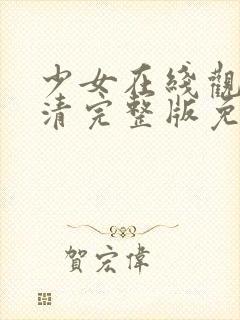 少女在綫觀
清完整版免
賀宏偉